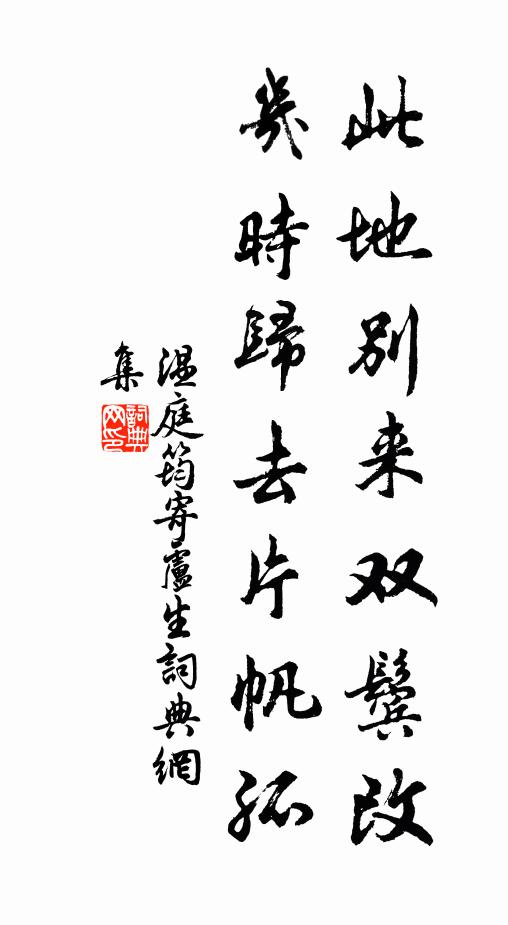 此地别来双鬓改
幾時歸去片帆孤
温庭筠寄盧生詞典網
集
詞典網印